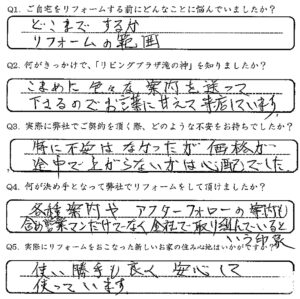 Q1. ご自宅をリフォームする前にどんなことに悩んでいましたか？
どこまで するか
リフォームの範囲
Q2. 何がきっかけで、「リビングプラザ滝の神」を知りましたか？
こまめに 色々な 案内を 送って
下さるのでお言葉に甘えて 来店しています
Q3. 実際に弊社でご契約を頂く際、どのような不安をお持ちでしたか？
特に不安は なかったが 価格が
途中で上がらないかは心配でした
Q4. 何が決め手となって弊社でリフォームをして頂けましたか？
各種案内や アフターフォローの案内も
含め営業マンだけでなく会社で取り組んでいると
いう印象
Q5. 実際にリフォームをおこなった新しいお家の住み心地はいかがですか？
使い勝手も良く 安心して
使っています